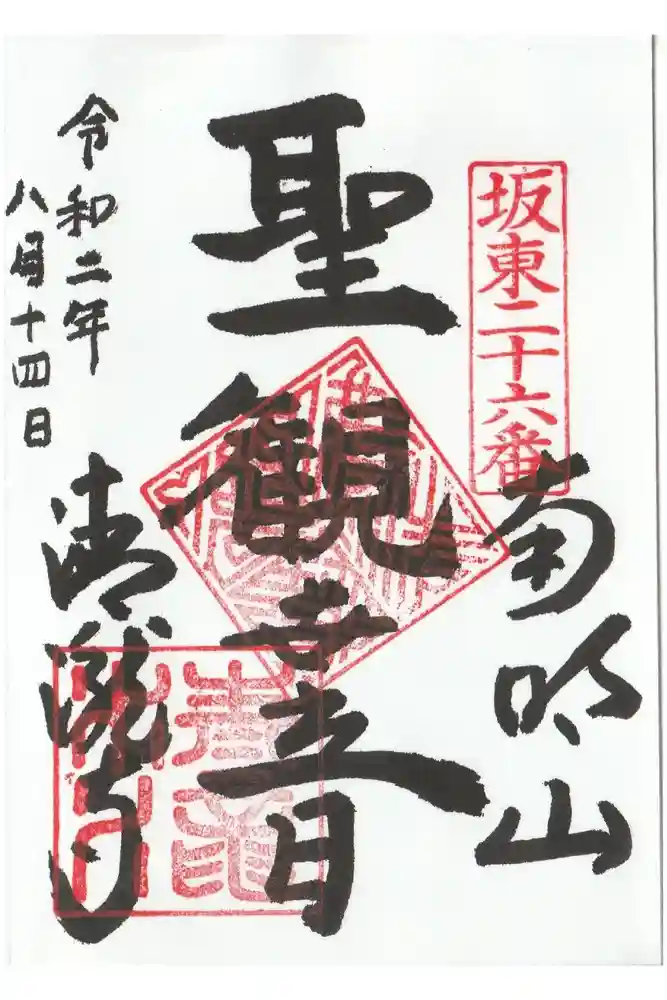 坂東二十六番
南明山
聖観世音
清瀧寺
令和二年
八月十四日